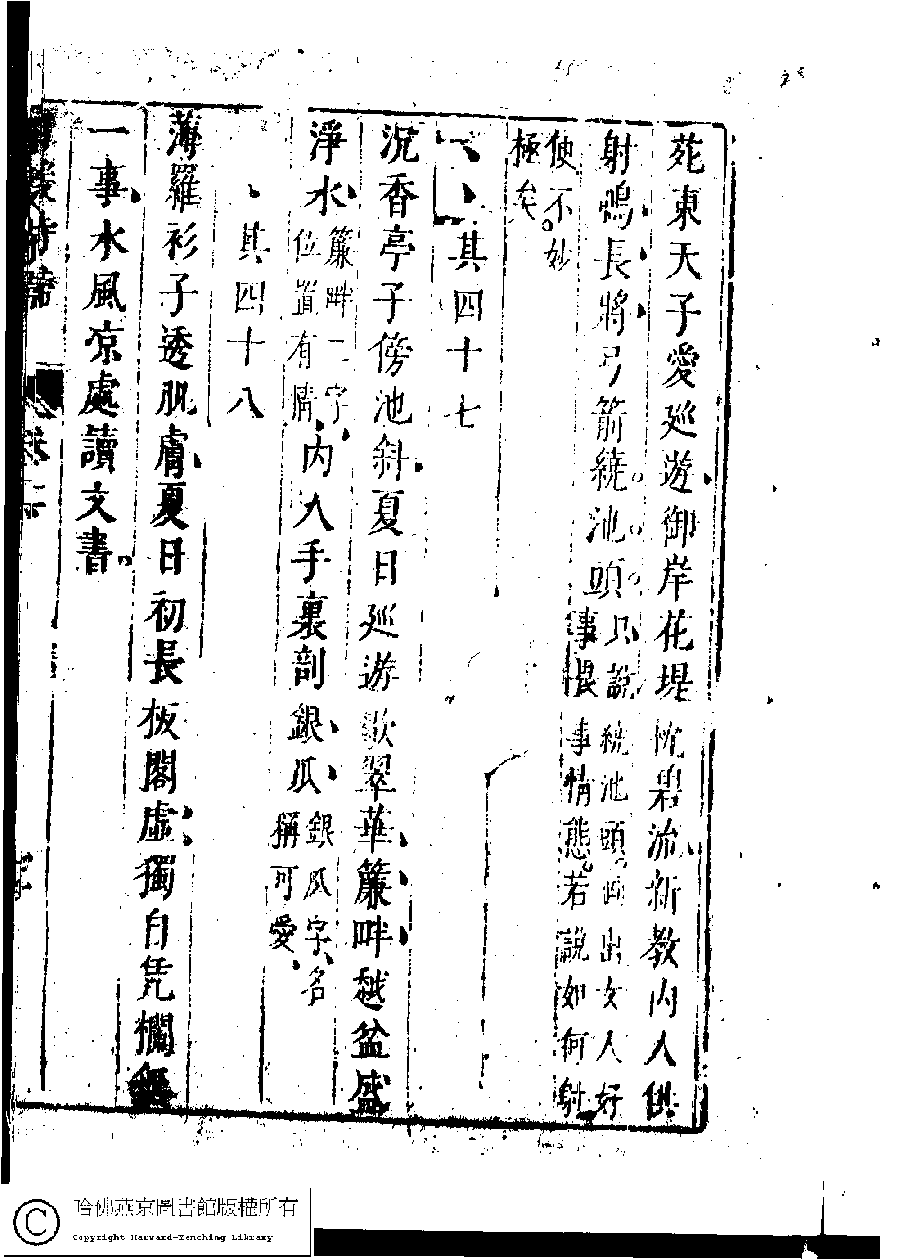 苑東天子愛廵遊御岸花堤枕碧流新教內人供
射鴨長將弓箭繞池頭只說繞池頭画出女人好
事恨事情態若說如何射
使不妙
極矣
其四十七
沉香亭子傍池斜夏日廵遊歇翠華簾畔越盆盛
淨水簾畔二字位置有情內人手裏剖銀瓜銀瓜字名稱可愛
其四十八
薄羅衫子透肌膚夏日初長板閣虛獨自凭欄無
一事水風凉處讀文書
哈佛燕京圖書館版權所有
Copyright Harvard-Yenching Library